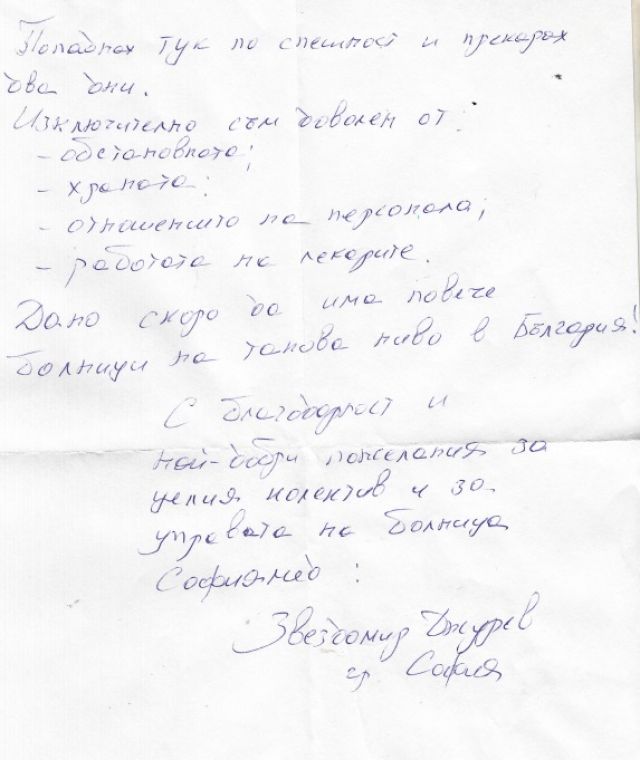 Попаднах тук по спешност и прекарах
два дни.
Изключително съм доволен от:
- обстановката;
- храната;
- отношението на персонала;
- работата на лекарите.
Дано скоро да има повече
болници на такова ниво в България!
С благодарност и
най-добри пожелания за
целия колектив и за
управата на болница
Софиямед:
Звездомир
гр. София